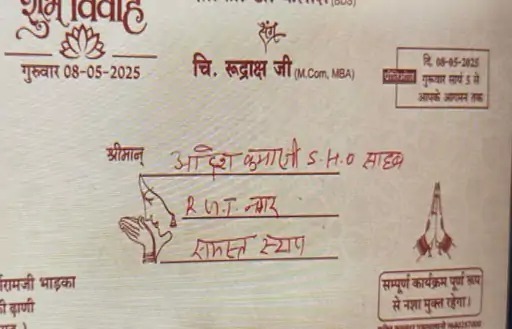 शुभ विवाह
(BDS)
संग
गुरूवार 08-05-2025
चि. रूद्राक्ष जी (M.Com, MBA)
दि. 08-05-2025
प्रीतिभोज गुरूवार सायं 5 से
आपके आगमन तक
श्रीमान् आदेश कुमारजी S.H.O साहब
नगर
समस्त स्टाप
रामजी भाड़का
की ढ़ाणी
सम्पूर्ण कार्यक्रम पूर्ण रूप
से नशा मुक्त रहेगा।